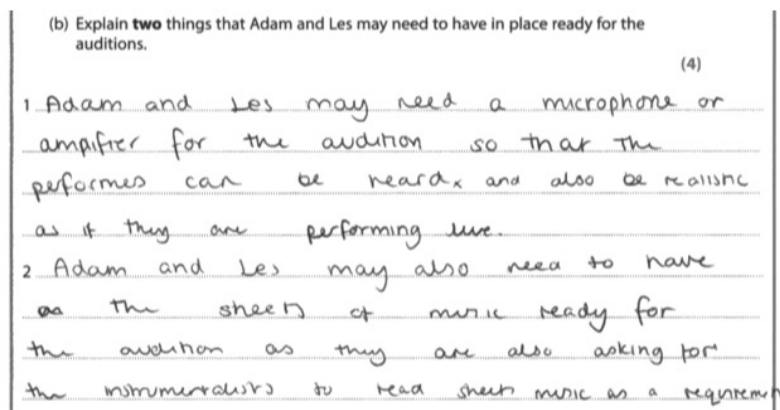 (b) Explain two things that Adam and Les may need to have in place ready for the
auditions.
(4)
1 Adam and Les may need a microphone or
ampifier for the audition so that the
performes can be heard and also be realistic
as if they are performing live.
2 Adam and Les may also need to have
the sheets of music ready for
the audition as they are also asking for
the instrumentalists to read sheet music as a requirement